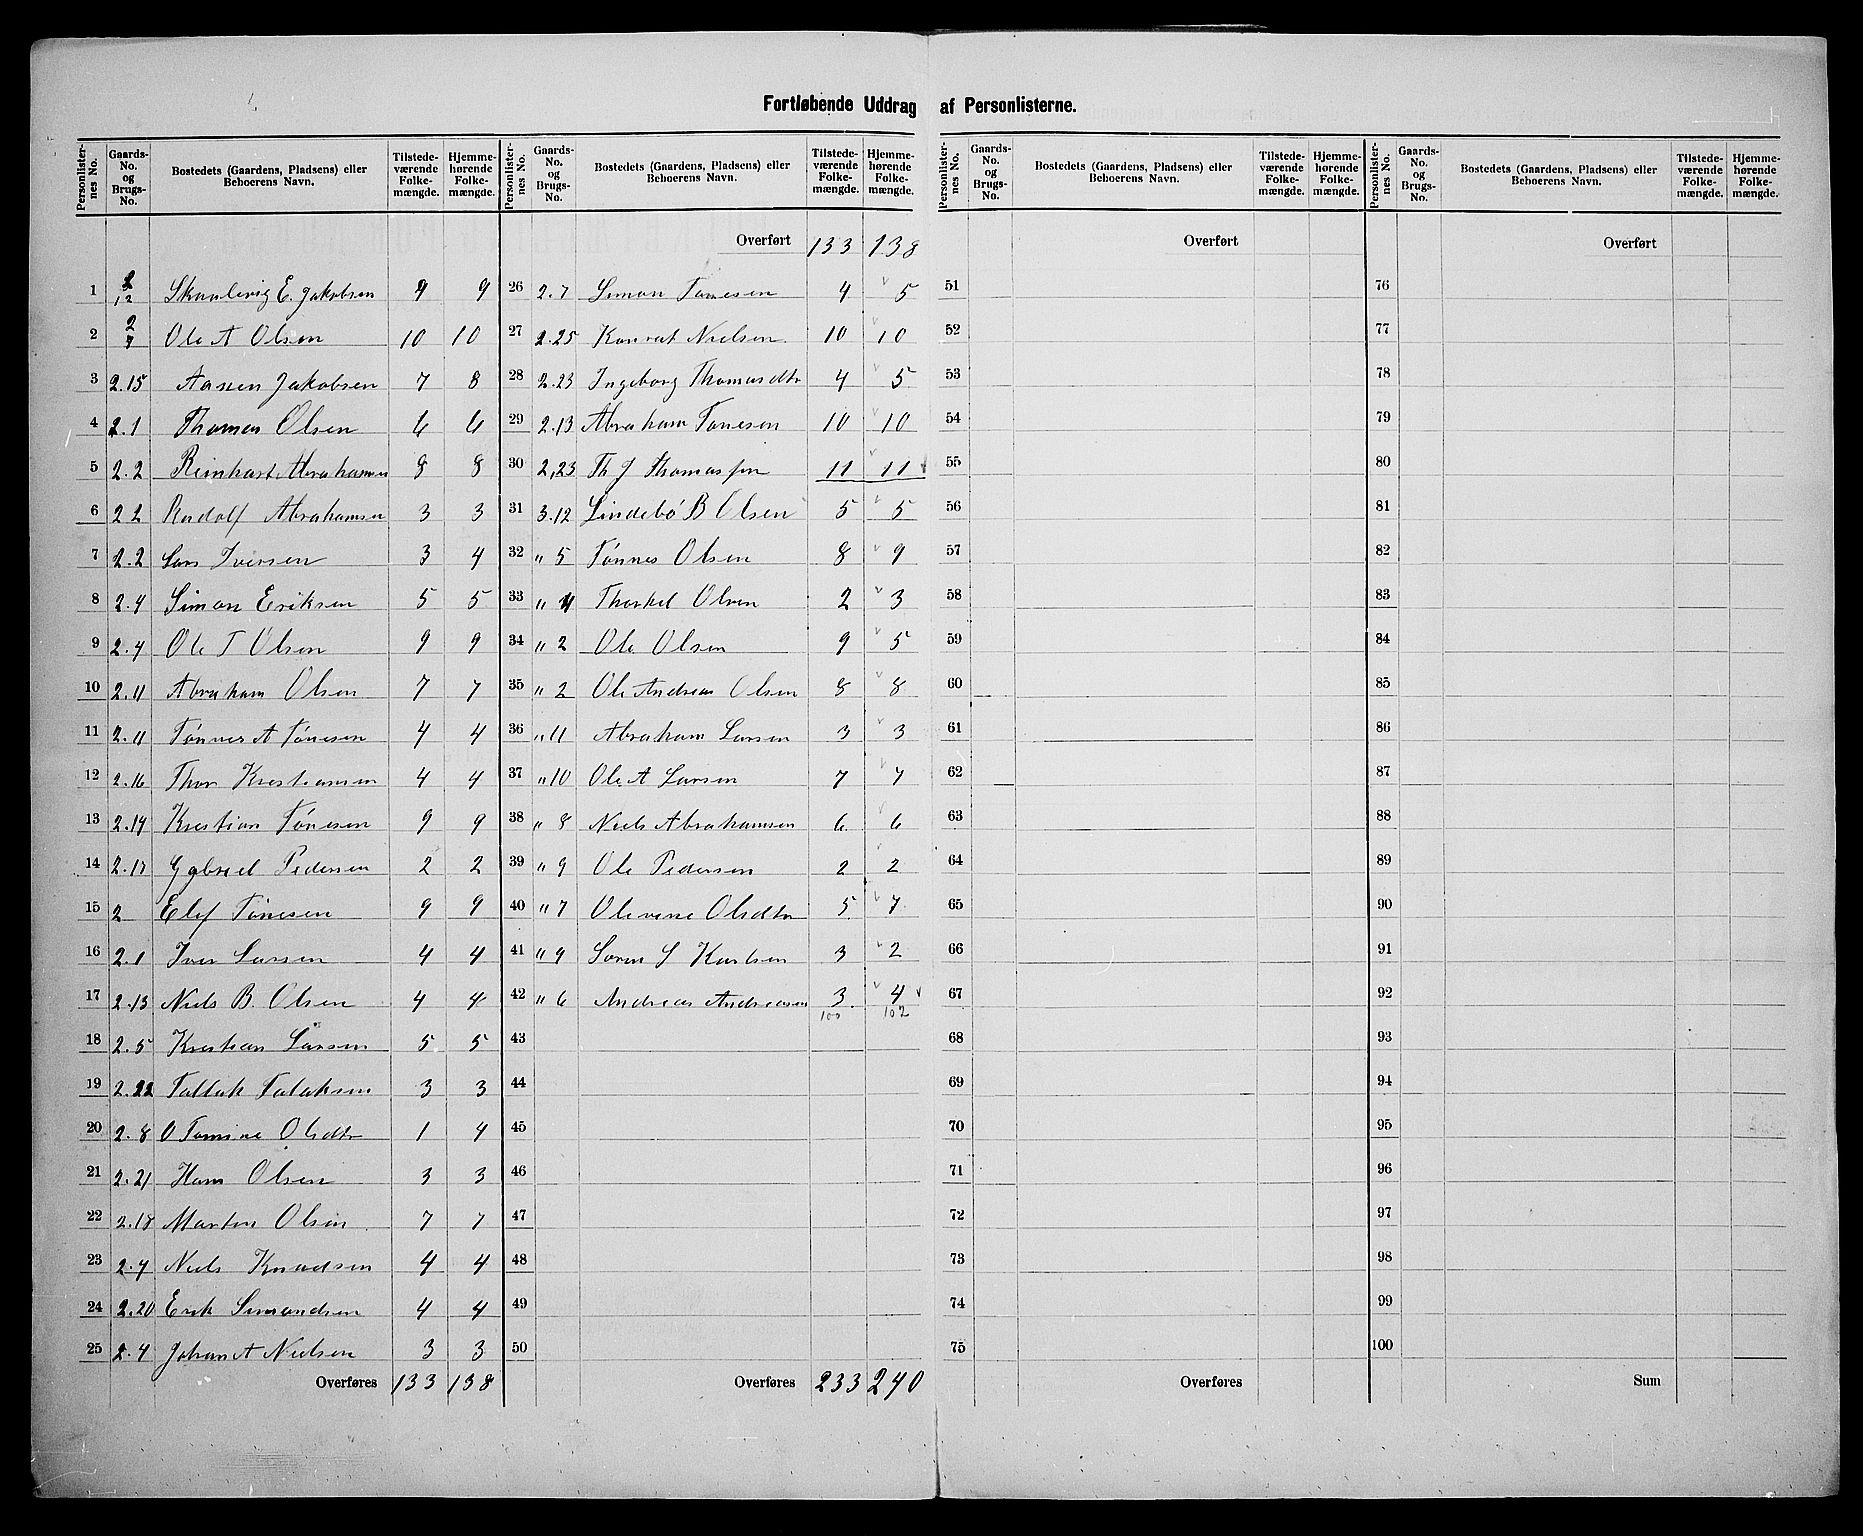 Fortløbende Uddrag af Personlisterne.
Personlister-nes No. | Gaards-No. og Brugs-No. | Bostedets (Gaardens, Pladsens) eller Beboerens Navn. | Tilstede-værende Folke-mængde. | Hjemme-hørende Folke-mængde.
1 2/12 Skaalevig E. Jakobsen 9 9
2 2/7 Ole A Olsen 10 10
3 2.15 Aanen Jakobsen 7 8
4 2.1 Thomas Olsen 6 6
5 2.2 Reinhart Abrahamsen 8 8
6 2 2 Rudolf Abrahamsen 3 3
7 2.2 Lars Iversen 3 4
8 2.4 Simon Eriksen 5 5
9 2.4 Ole T Olsen 9 9
10 2.11 Abraham Olsen 7 7
11 2.11 Tønnes A Tønesen 4 4
12 2.16 Thor Krestiansen 4 4
13 2.14 Krestian Tønesen 9 9
14 2.17 Gabriel Pedersen 2 2
15 2 Elef Tønesen 9 9
16 2.1 Iver Larsen 4 4
17 2.13 Niels B. Olsen 4 4
18 2.5 Krestian Larsen 5 5
19 2.22 Tallak Talaksen 3 3
20 2.8 O Tomine Olsdtr 1 4
21 2.21 Hans Olsen 3 3
22 2.18 Marten Olsen 7 7
23 2.4 Niels Knudsen 4 4
24 2.20 Erik Simondsen 4 4
25 2.4 Johan A Nielsen 3 3
Overføres 133 138
Personlister-nes No. | Gaards-No. og Brugs-No. | Bostedets (Gaardens, Pladsens) eller Beboerens Navn. | Tilstede-værende Folke-mængde. | Hjemme-hørende Folke-mængde.
Overført 133 138
26 2.7 Simon Tønesen 4 5
27 2.25 Konrat Nielsen 10 10
28 2.23 Ingeborg Thomasdtr 4 5
29 2.13 Abraham Tønesen 10 10
30 2,23 Th J Thomassen 11 11
31 3.12 Lindebø B Olsen 5 5
32 " 5 Tønnes Olsen 8 9
33 " 4 Thorkel Olsen 2 3
34 " 2 Ole Olsen 9 5
35 " 2 Ole Andreas Olsen 8 8
36 " 11 Abraham Larsen 3 3
37 " 10 Ole A Larsen 7 7
38 " 8 Niels Abrahamsen 6 6
39 " 9 Ole Pedersen 2 2
40 " 7 Olevine Olsdtr 5 7
41 " 9 Søren S Karlsen 3 2
42 " 6 Andreas Andreasen 3 4
100 102
43
44
45
46
47
48
49
50
Overføres 233 240
Personlister-nes No. | Gaards-No. og Brugs-No. | Bostedets (Gaardens, Pladsens) eller Beboerens Navn. | Tilstede-værende Folke-mængde. | Hjemme-hørende Folke-mængde.
Overført
51
52
53
54
55
56
57
58
59
60
61
62
63
64
65
66
67
68
69
70
71
72
73
74
75
Overføres
Personlister-nes No. | Gaards-No. og Brugs-No. | Bostedets (Gaardens, Pladsens) eller Beboerens Navn. | Tilstede-værende Folke-mængde. | Hjemme-hørende Folke-mængde.
Overført
76
77
78
79
80
81
82
83
84
85
86
87
88
89
90
91
92
93
94
95
96
97
98
99
100
Sum